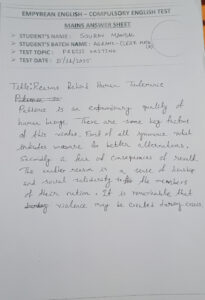 EMPYREAN ENGLISH – COMPULSORY ENGLISH TEST
MAINS ANSWER SHEET
➤ STUDENT'S NAME: SOURAV MANDAL
➤ STUDENT'S BATCH NAME: AGRANI-CLERK
➤ TEST TOPIC: PRECIS WRITING
➤ TEST DATE:
Title: Reasons Behind Human Tolerance
Patience is an extraordinary quality of
human beings. There are some key factors
of this value. First of all ignorance
for better alternatives.
Secondly a fear of consequences of revolt.
The another reason is a sense of
and social solidarity to the members
of their nation. It is remarkable that
violence may be created during crises.